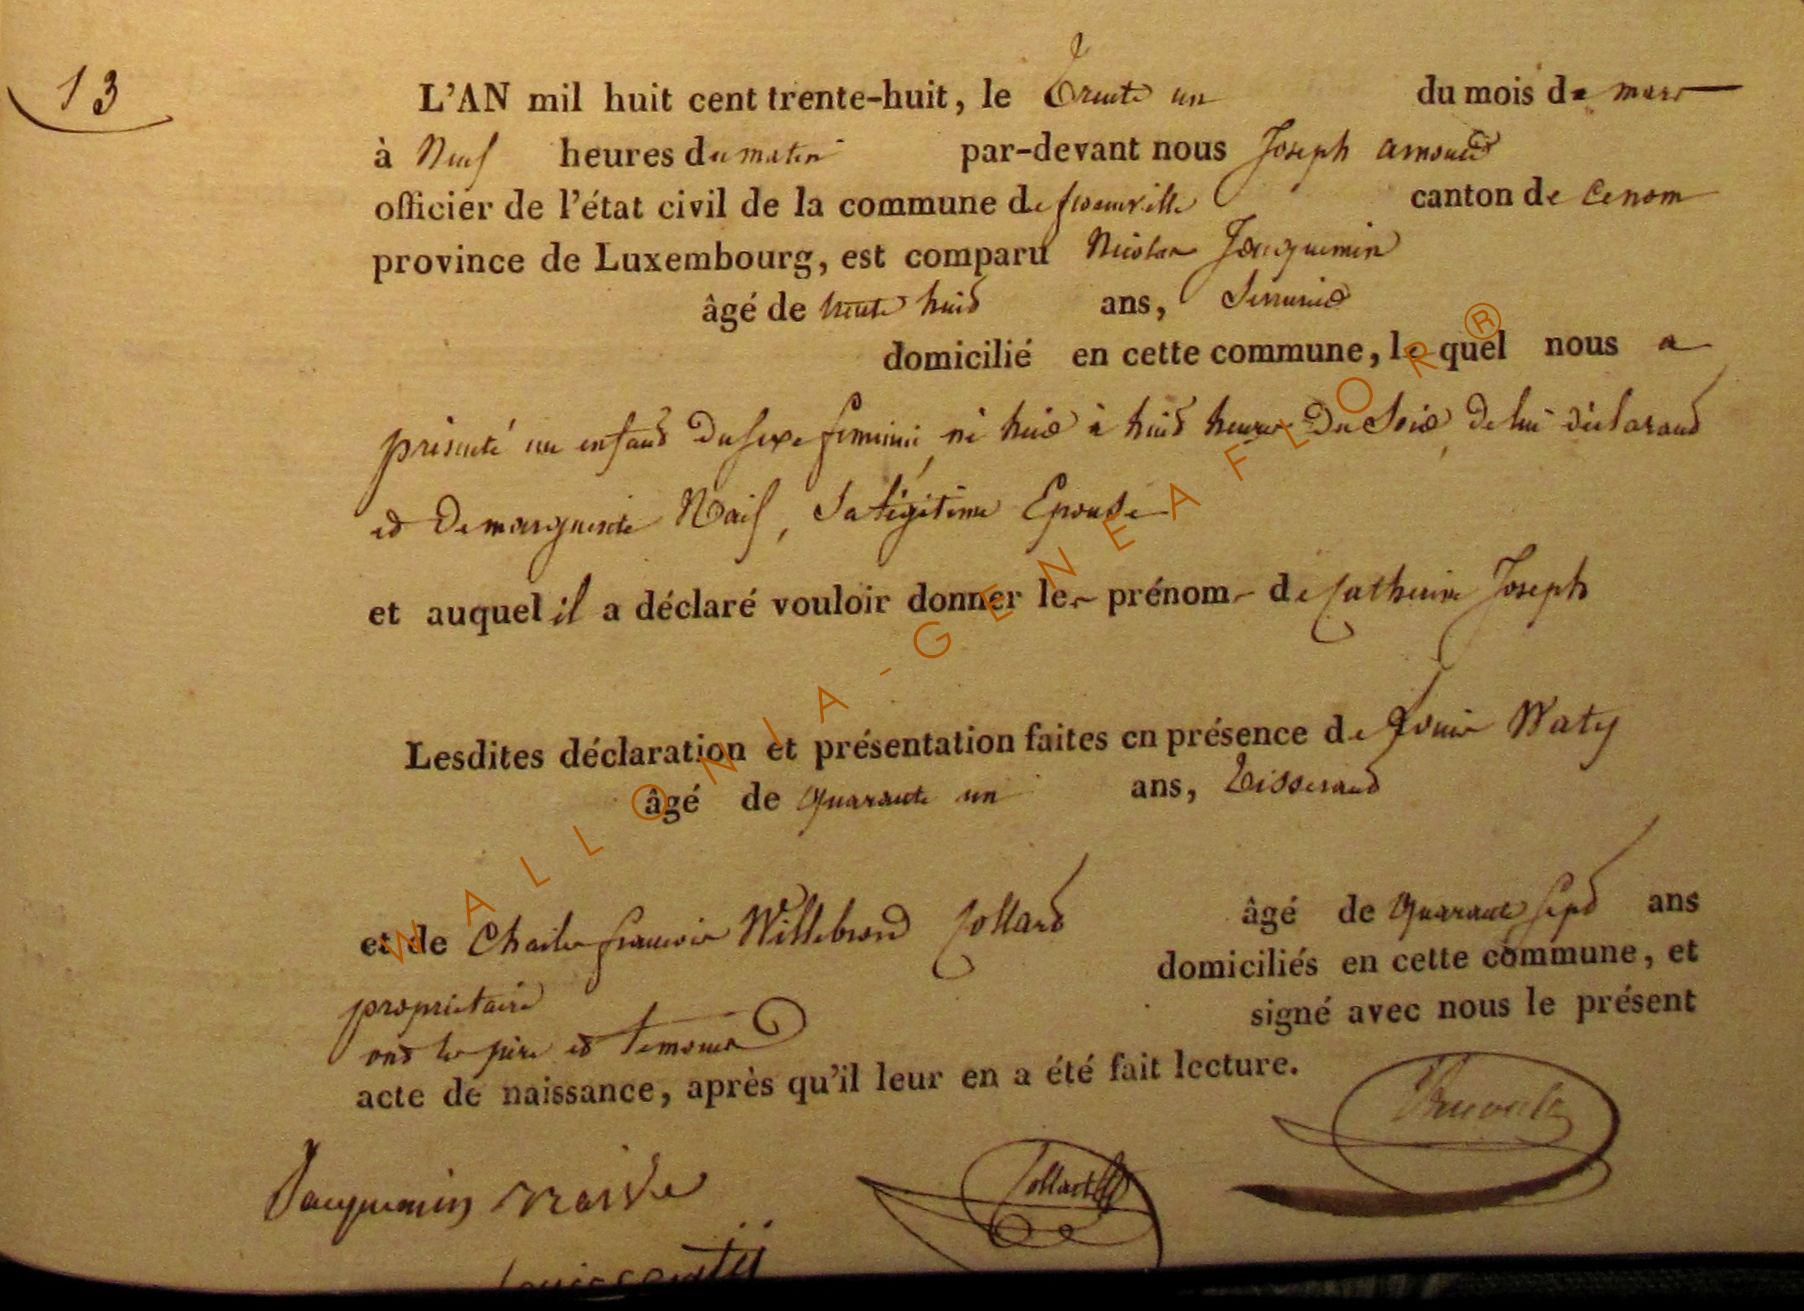 13
L'AN mil huit cent trente-huit, le Trente un du mois de mars
à Neuf heures du matin par-devant nous Joseph arnould
officier de l'état civil de la commune de frenouville canton de
province de Luxembourg, est comparu Nicolas Jacquemin
âgé de trente huit ans, Serrurier
domicilié en cette commune, lequel nous a
présenté un enfant du sexe feminin, né hier à huit heures du Soir, de lui déclarant
et de marguerite Naif, Sa légitime Epouse
et auquel il a déclaré vouloir donner les prénoms de Catherine Joseph
Lesdites déclaration et présentation faites en présence de Louis Waty
âgé de quarante un ans, Tisserand
et de Charles francois Willebrord Collard âgé de quarante sept ans
propriétaire domiciliés en cette commune, et
ont les père et temoins signé avec nous le présent
acte de naissance, après qu'il leur en a été fait lecture.
Jacquemin Collard
WALLONIA-GENEAFLOR®